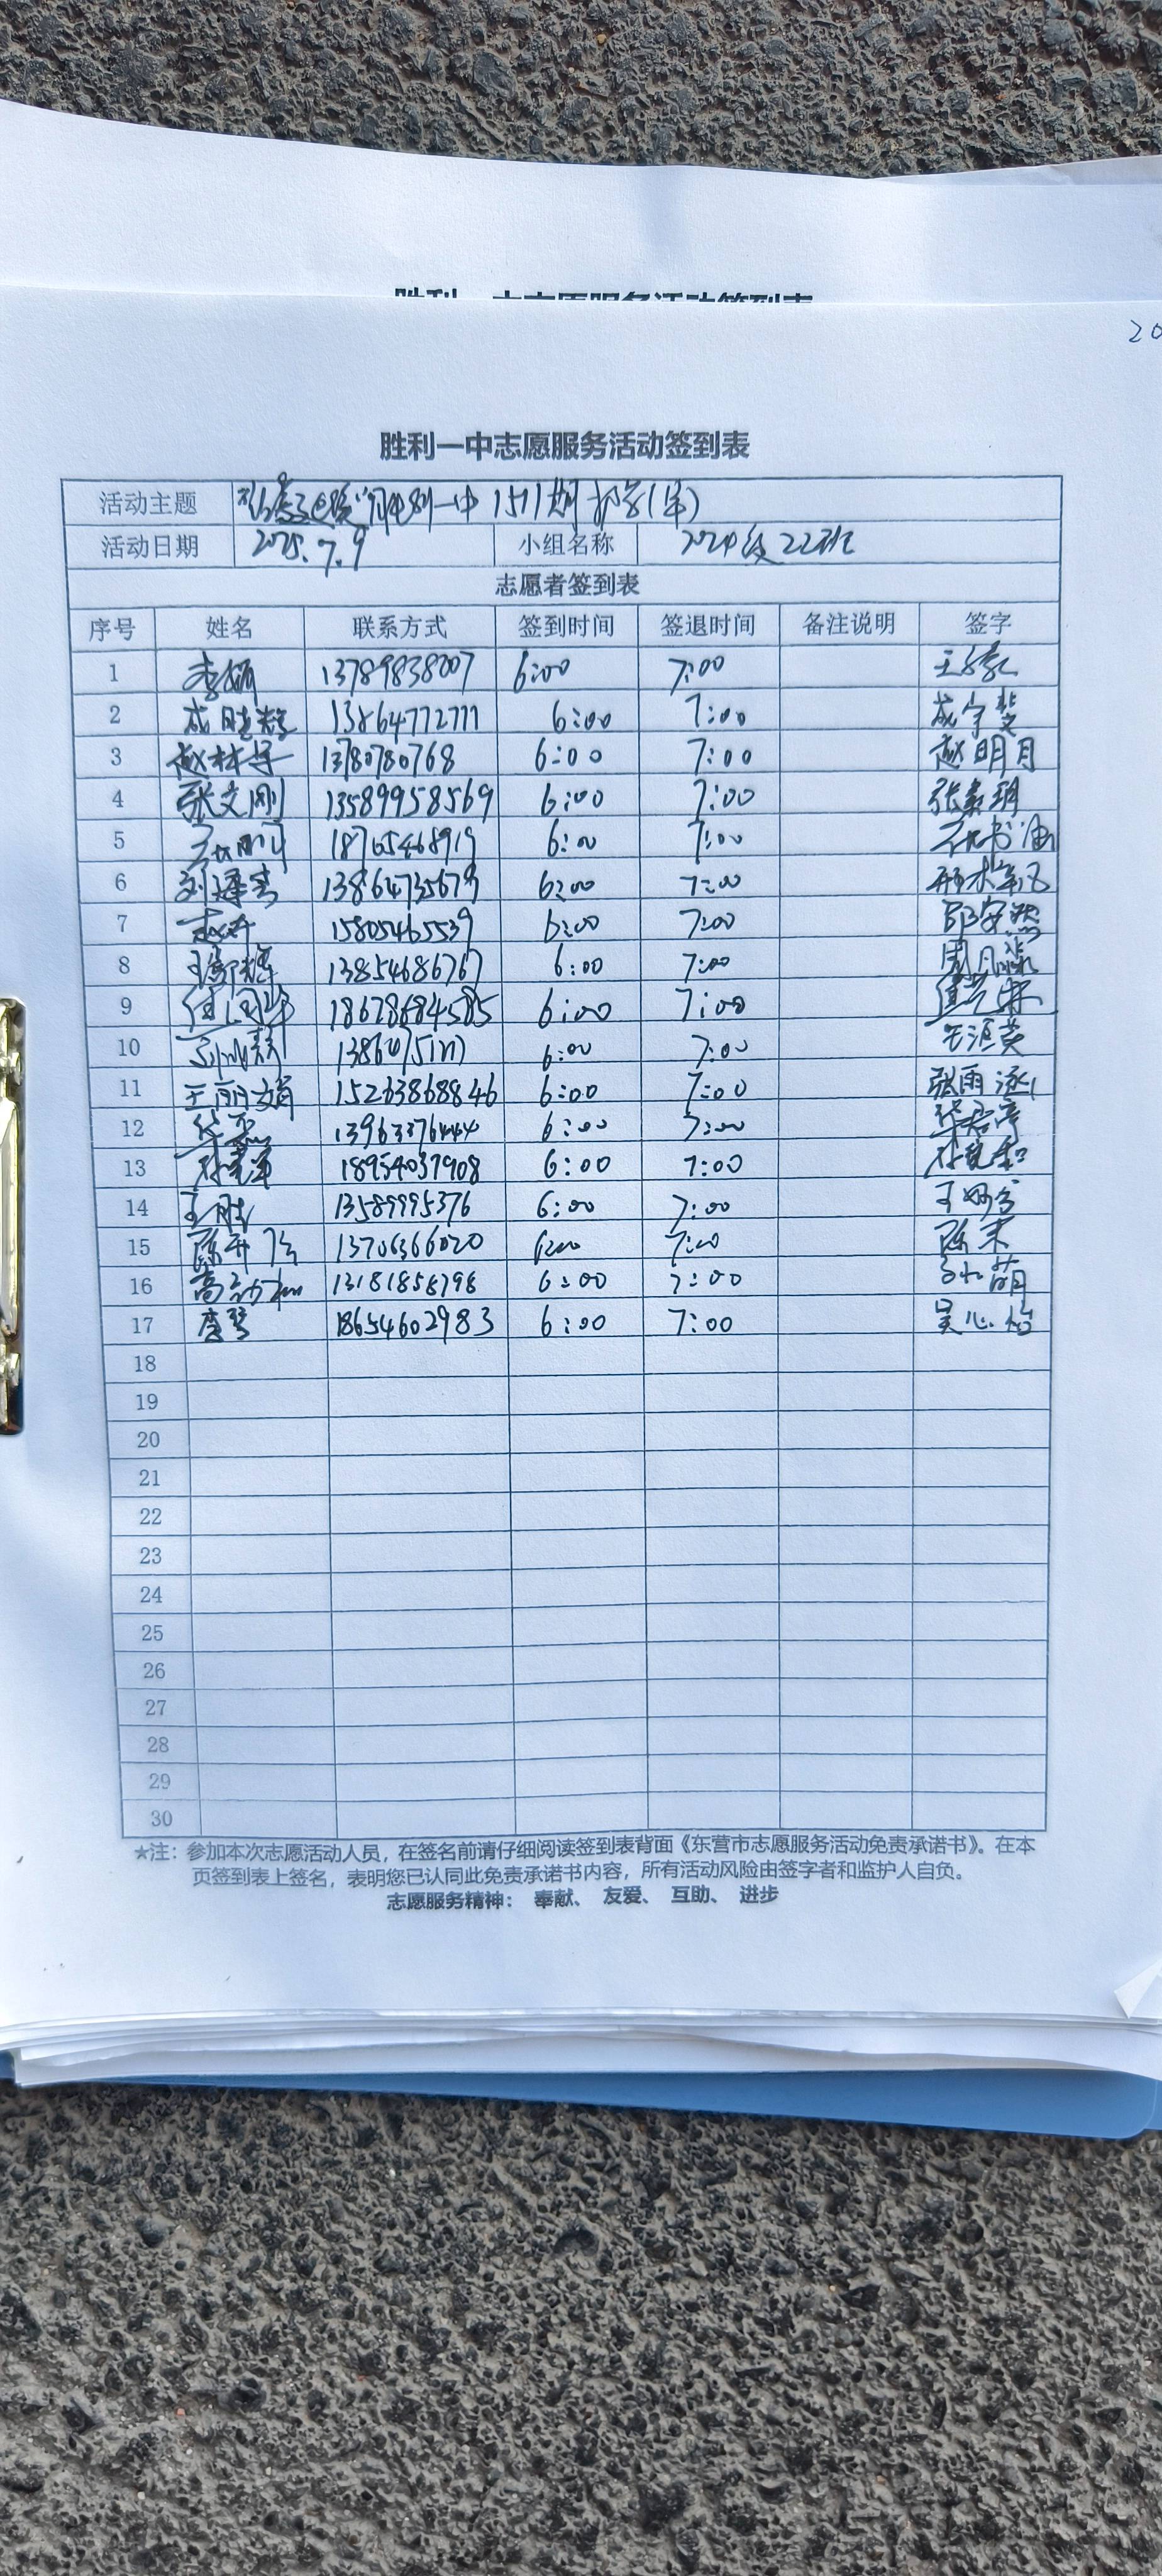 20
胜利一中志愿服务活动签到表
活动主题 一中1511期护学(早)
活动日期 2025.7.9 小组名称 2024级22班
志愿者签到表
序号 姓名 联系方式 签到时间 签退时间 备注说明 签字
1 李娟 13789838007 6:00 7:00
2 成 13864772777 6:00 7:00 成宇
3 赵林 13780780768 6:00 7:00 赵明月
4 张文刚 13589958569 6:00 7:00 张
5 18765468919 6:00 7:00
6 刘 13864735679 6:00 7:00
7 15805465539 6:00 7:00 邵安然
8 13854686767 6:00 7:00 周月
9 18678684585 6:00 7:00
10 6:00 7:00
11 王丽娟 15263868846 6:00 7:00 张雨
12 13963376444 6:00 7:00
13 18954037908 6:00 7:00
14 王 13589995376 6:00 7:00 王
15 陈 13706366020 6:00 7:00 陈
16 高 13181858798 6:00 7:00 萌
17 李琴 18654602983 6:00 7:00 吴心怡
18
19
20
21
22
23
24
25
26
27
28
29
30
★注：参加本次志愿活动人员，在签名前请仔细阅读签到表背面《东营市志愿服务活动免责承诺书》。在本
页签到表上签名，表明您已认同此免责承诺书内容，所有活动风险由签字者和监护人自负。
志愿服务精神： 奉献、 友爱、 互助、 进步